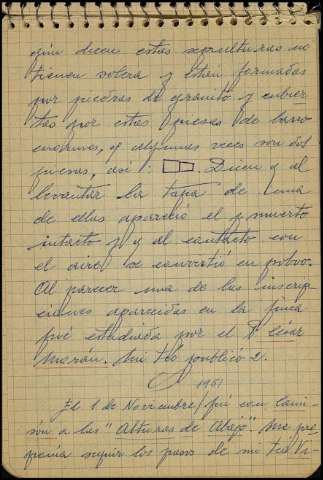 gún dicen estas sepulturas no
tienen solera y están formadas
por piedras de granito y cubier
tas por estas piezas de barro
enormes, q algunas veces son dos
piezas, así: . Dicen q al
levantar la tapa de una
de ellas apareció el muerto
intacto y q al contacto con
el aire se convirtió en polvo.
Al parecer una de las inscrip
ciones aparecidas en la finca
fué estudiada por el P. César
Morán. Mi tío publicó 2.
1961
El 1 de Noviembre / fuí con
a las "Alturas de Abajo". Me pro
ponía seguir los pasos de mi tío Vi-